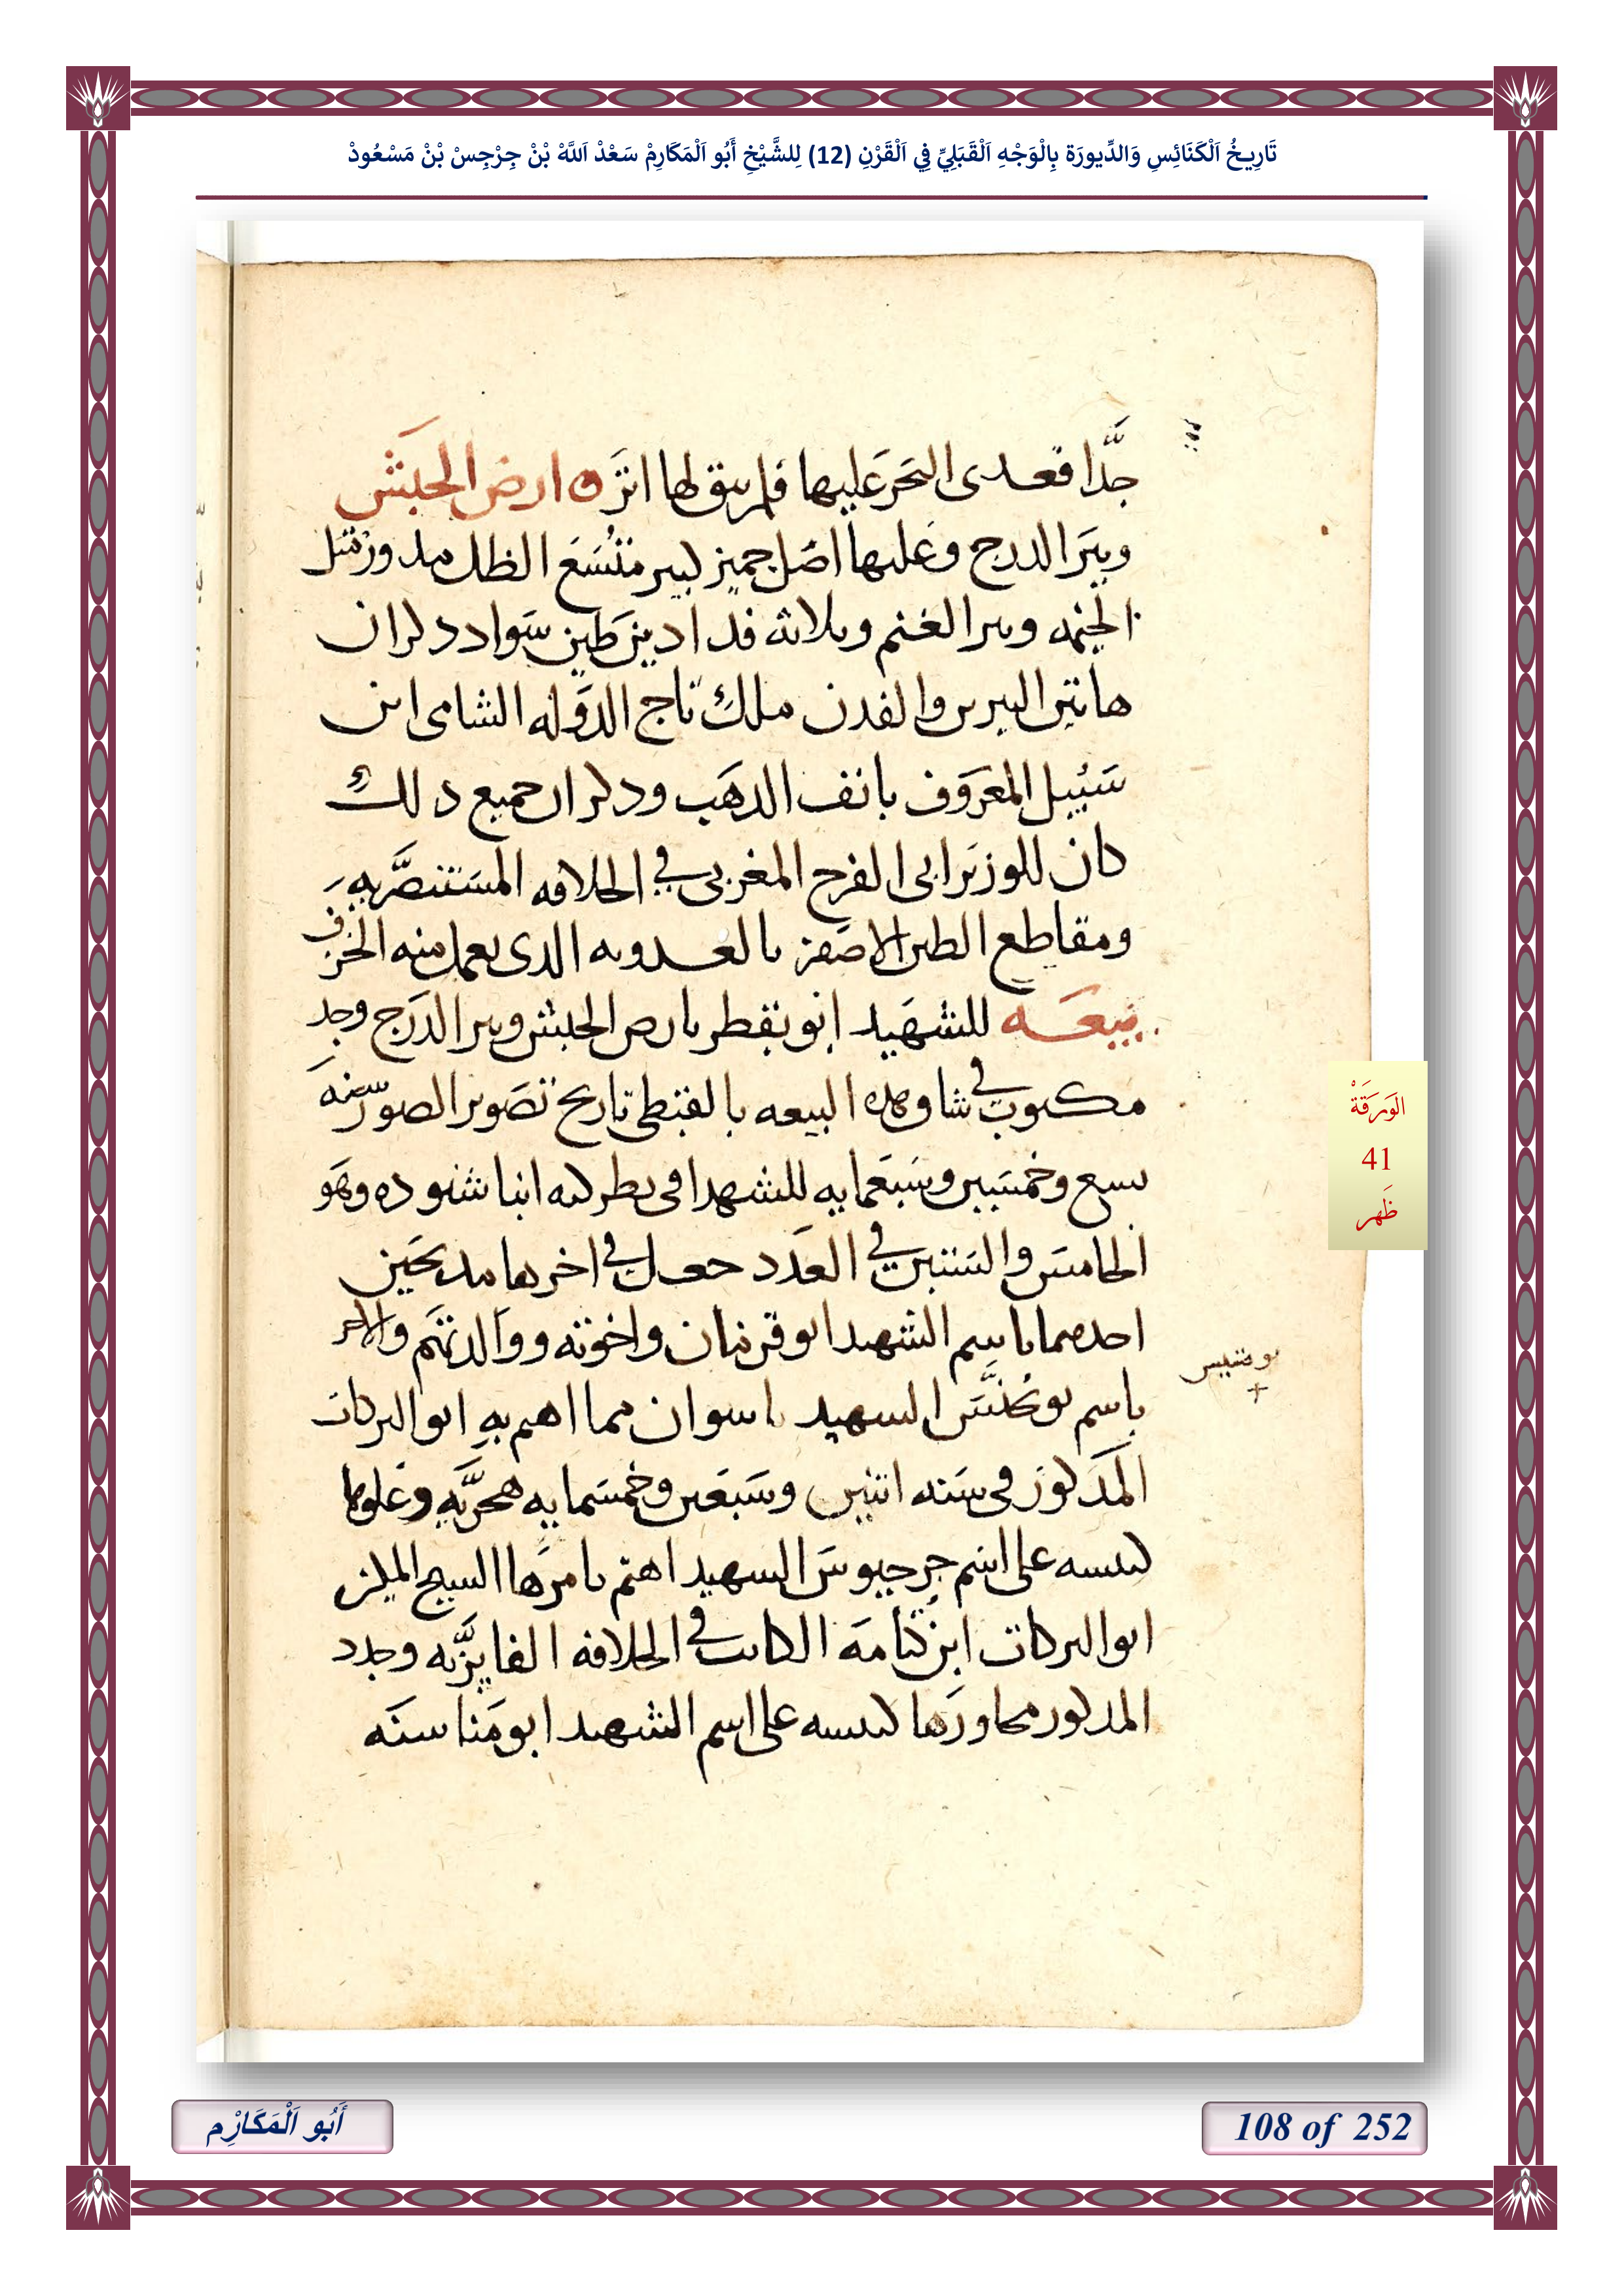 تَارِيخُ اَلْكَنَائِسِ وَالدِّيورَة بِالْوَجْهِ اَلْقَبَلِيِّ فِي اَلْقَرْنِ (12) لِلشَّيْخِ أَبُو اَلْمَكَارِمْ سَعْدْ اَللَّهْ بْنْ جِرْجِسْ بْنْ مَسْعُودْ
جدَّا فعدى البَحرَ عَليها فلم يبق لها اثرَ ارض الحبَش
وبيَر الدرج وعليها اصَل جميز كبير متسَعَ الظل مدور مثل
الخيمه وبير الغنم وثلاثه فدادين طين سَواد ذكر ان
هاتين البيرين والفدن ملك تاج الدوله الشامى ابن
سَنبيل المعرَوف بانف الدهَب وذكر ان جميع دلك
كان للوزيَر ابى الفرج المغربى في الخلافه المسَتنصرَّيهِ
ومقاطع الطين الاصَفر بالعدويه الدى يعمل منه الخزف
بيعَه للشهَيد ابو بقطر بارض الحبش وبير الدَرَج وجد
مكتوب في شاو هده البيعه بالقبطى تاريخ تصَوير الصور سنهَ
تسع وخمسَين وسَبعَمايه للشهدا فى بطركيه انبا شنوده وهَو
الخامسَ والسَتين في العَدد جعل في اخرها مدبحَين
احدهما باسم الشهيد ابو قرمان واخوته ووالدتهَم والاخر
باسم بو يحنسَّ الشهيد باسوان مما اهم بهِ ابو البركات
المَدكورَ فى سَنه اتنين وسَبعَين وخمسَمايه هجريَّهِ وعلوها
كنيسه على اسَم جرجيوسَ الشهيد اهتم بامرَها الشيخ المكين
ابو البركات ابن كتامَه الكاتب في الخلافه الفايزيَّه وجدد
المدكور مجاورَها كنيسه على اسم الشهيد ابو مَنا سنَه
الوَرَقَةْ
41
ظَهر
أَبُو اَلْمَكَارْمِ
108 of 252